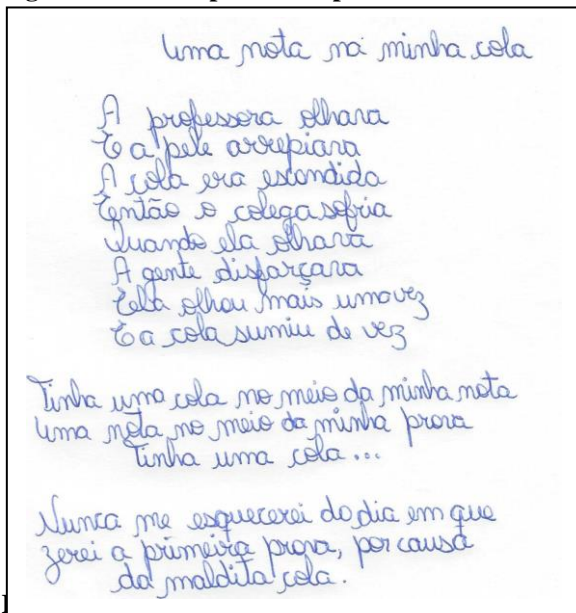 Uma nota na minha cola
A professora olhava
E a pele arrepiava
A cola era escondida
Então o colega sofria
Quando ela olhava
A gente disfarçava
Ela olhou mais uma vez
E a cola sumiu de vez
Tinha uma cola no meio da minha nota
Uma nota no meio da minha prova
Tinha uma cola...
Nunca me esquecerei do dia em que
zerei a primeira prova, por causa
da maldita cola.